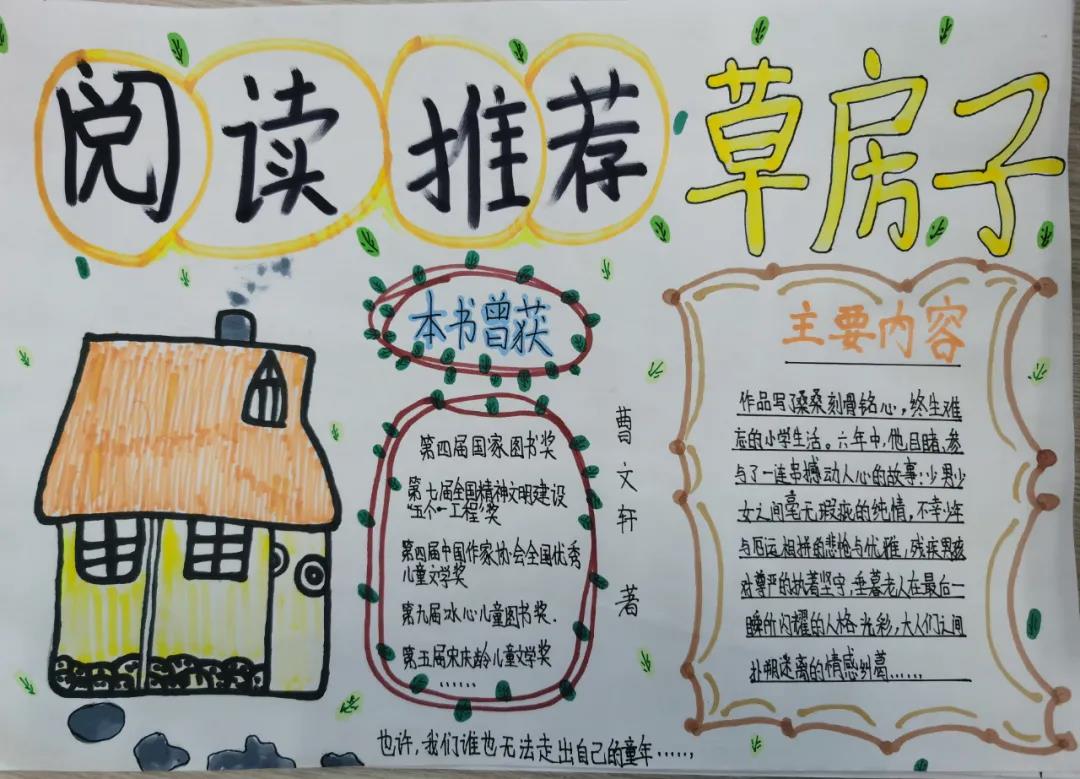 阅读推荐
草房子
本书曾获
第四届国家图书奖
第七届全国精神文明建设
“五个一工程”奖
第四届中国作家协会全国优秀
儿童文学奖
第九届冰心儿童图书奖.
第五届宋庆龄儿童文学奖
……
曹文轩 著
主要内容
作品写了桑桑刻骨铭心,终生难
忘的小学生活。六年中,他目睹、参
与了一连串撼动人心的故事:少男少
女之间毫无瑕疵的纯情,不幸少年
与厄运相拼的悲怆与优雅,残疾男孩
对尊严的执着坚守,垂暮老人在最后一
瞬所闪耀的人格光彩,大人们之间
扑朔迷离的情感纠葛……
也许,我们谁也无法走出自己的童年……,